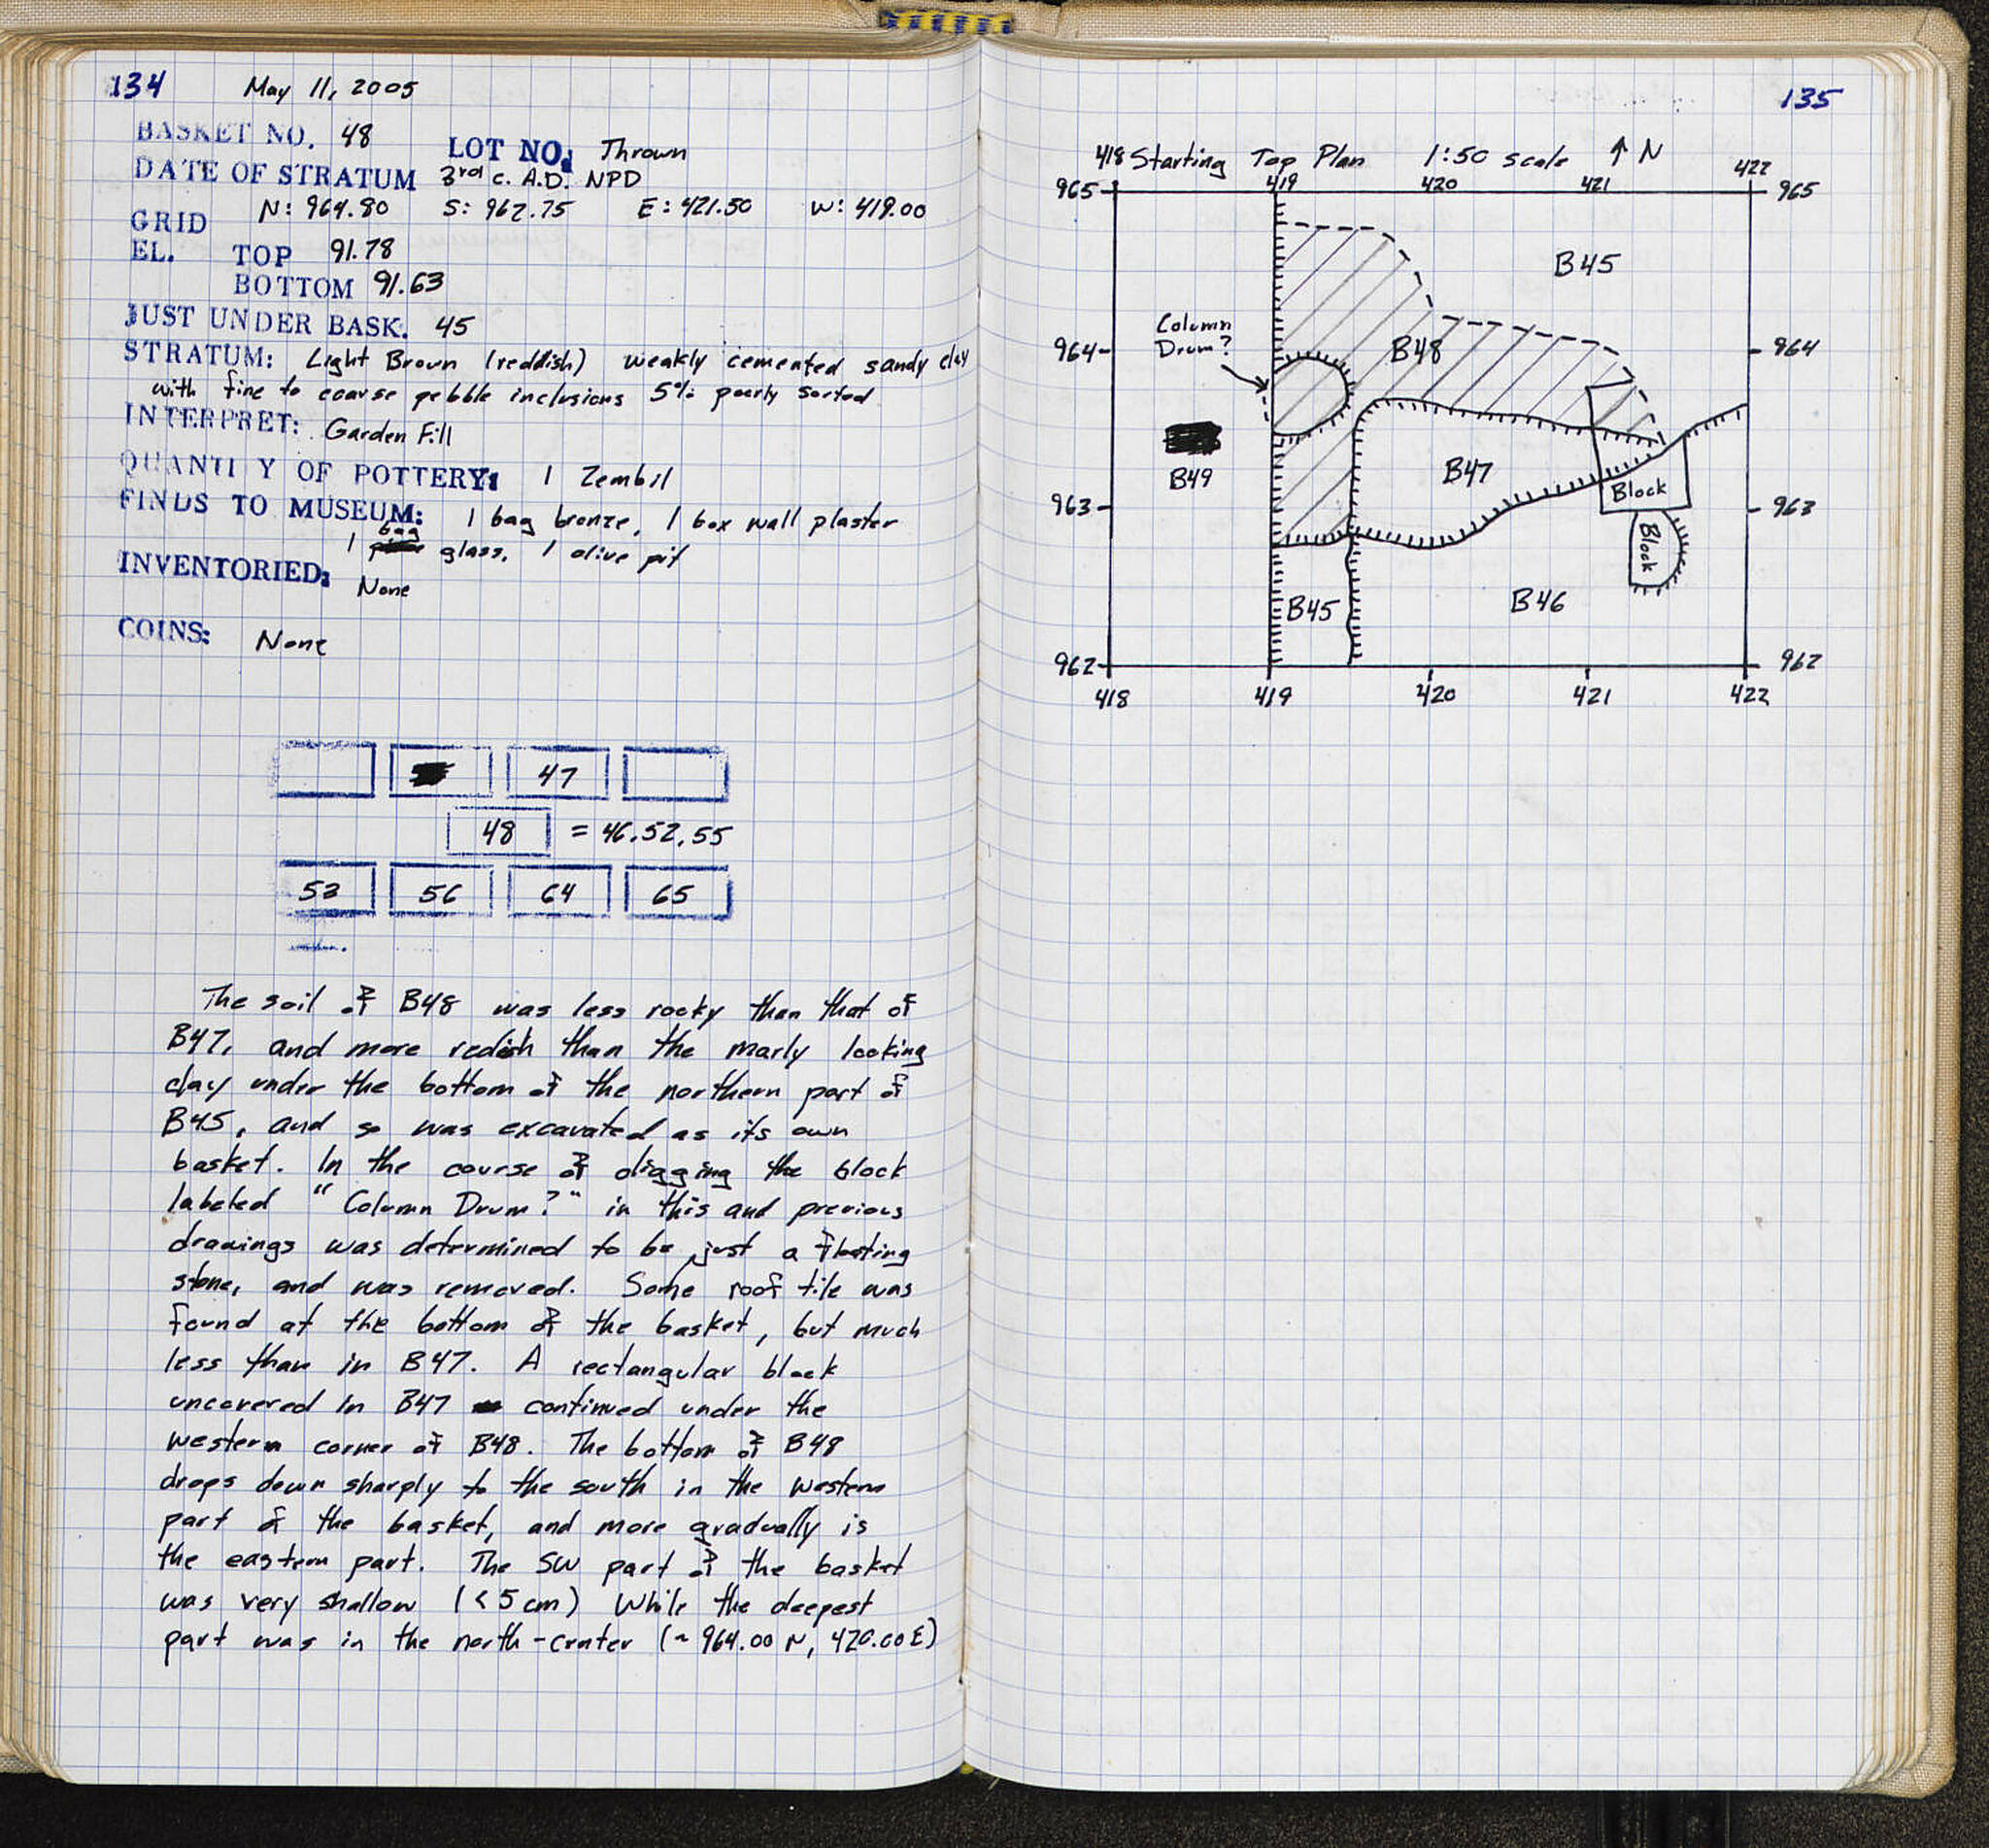 134 May 11, 2005
BASKET NO. 48 LOT NO. Thrown
DATE OF STRATUM 3rd c. A.D. NPD
GRID N: 964.80 S: 962.75 E: 421.50 W: 419.00
EL. TOP 91.78
BOTTOM 91.63
JUST UNDER BASK. 45
STRATUM: Light Brown (reddish) weakly cemented sandy clay
with fine to coarse pebble inclusions 5% poorly sorted
INTERPRET: Garden Fill
QUANTI Y OF POTTERY: 1 Zembil
FINDS TO MUSEUM: 1 bag bronze, 1 box wall plaster
1 bag glass, 1 olive pit
INVENTORIED: None
COINS: None
47
48 = 46, 52, 55
53 56 64 65
The soil of B48 was less rocky than that of
B47, and more redish than the marly looking
clay under the bottom of the northern part of
B45, and so was excavated as its own
basket. In the course of digging the block
labeled "Column Drum?" in this and previous
drawings was determined to be just a floating
stone, and was removed. Some roof tile was
found at the bottom of the basket, but much
less than in B47. A rectangular block
uncovered in B47 continued under the
western corner of B48. The bottom of B48
drops down sharply to the south in the western
part of the basket, and more gradually is
the eastern part. The SW part of the basket
was very shallow (<5cm) While the deepest
part was in the north-center (~964.00 N, 420.00 E)
135
Starting Top Plan 1:50 scale ↑ N
418 419 420 421 422
965 965
B45
Column
Drum?
964 B48 964
B49 B47 Block
963 963
Block
B45 B46
962 962
418 419 420 421 422